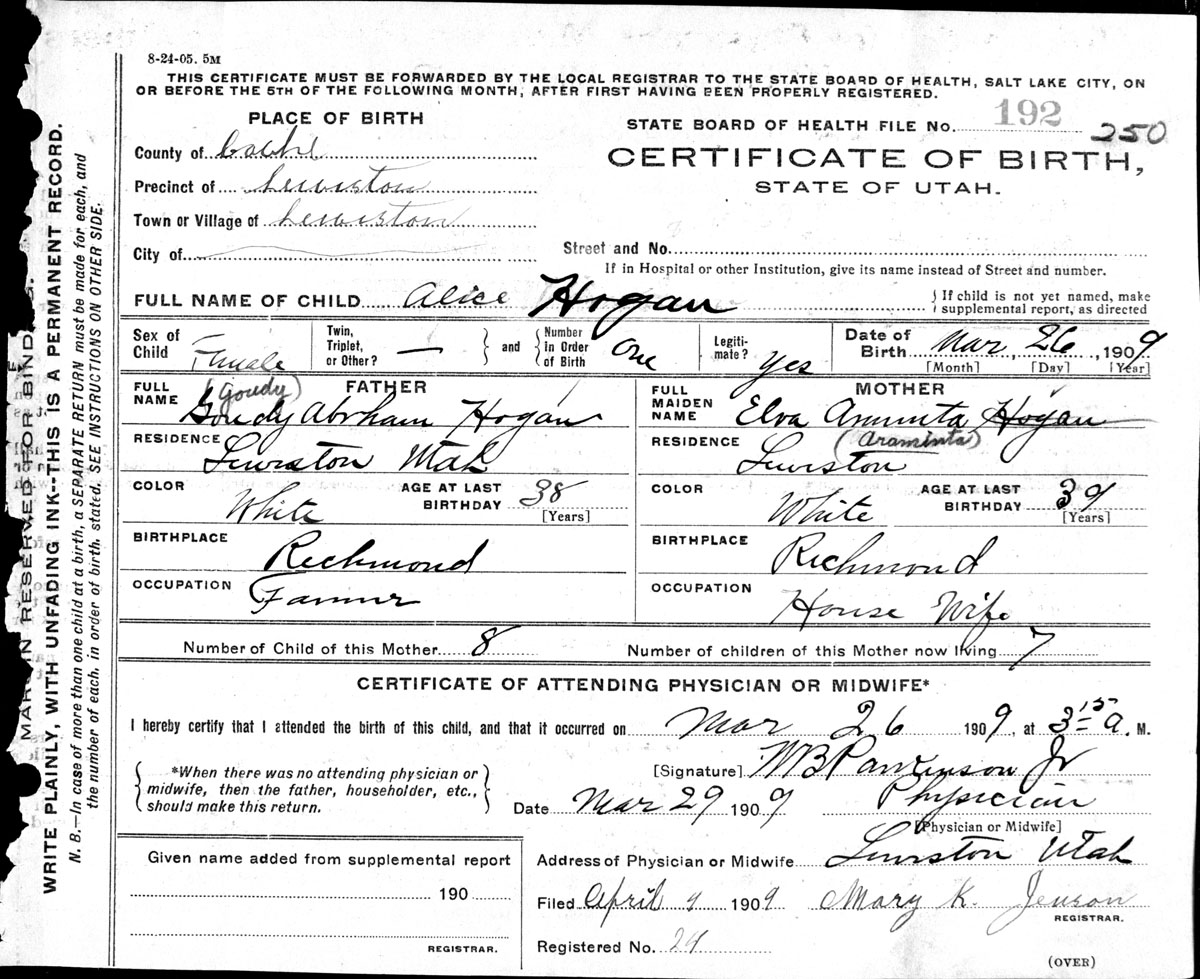 8-24-05. 5M
THIS CERTIFICATE MUST BE FORWARDED BY THE LOCAL REGISTRAR TO THE STATE BOARD OF HEALTH, SALT LAKE CITY, ON
OR BEFORE THE 5TH OF THE FOLLOWING MONTH, AFTER FIRST HAVING BEEN PROPERLY REGISTERED.
PLACE OF BIRTH
STATE BOARD OF HEALTH FILE No. 192 250
County of Cache
CERTIFICATE OF BIRTH,
Precinct of Lewiston
STATE OF UTAH.
Town or Village of Lewiston
City of
Street and No.
If in Hospital or other Institution, give its name instead of Street and number.
FULL NAME OF CHILD Alice Hogan
If child is not yet named, make
supplemental report, as directed
Sex of Child Female
Twin, Triplet, or Other? —
and
Number in Order of Birth One
Legiti-mate? yes
Date of Birth Mar, 26, 1909
[Month] [Day] [Year]
FULL NAME FATHER
(Goudy)
Goudy Abrham Hogan
FULL MAIDEN NAME MOTHER
Elva Aminta Hogan
(Araminta)
RESIDENCE Lewiston Utah
RESIDENCE Lewiston
COLOR White
AGE AT LAST BIRTHDAY 38
[Years]
COLOR White
AGE AT LAST BIRTHDAY 39
[Years]
BIRTHPLACE Richmond
BIRTHPLACE Richmond
OCCUPATION Farmer
OCCUPATION House Wife
Number of Child of this Mother 8
Number of children of this Mother now living 7
CERTIFICATE OF ATTENDING PHYSICIAN OR MIDWIFE*
I hereby certify that I attended the birth of this child, and that it occurred on Mar 26 1909, at 3 15 a. M.
*When there was no attending physician or
midwife, then the father, householder, etc.,
should make this return.
[Signature] WB Parkinson Jr
Date Mar 29 1909 Physician
[Physician or Midwife]
Given name added from supplemental report
190
REGISTRAR.
Address of Physician or Midwife Lewiston Utah
Filed April 9 1909 Mary K. Jenson
REGISTRAR.
Registered No. 29
(OVER)
MARGIN RESERVED FOR BINDING.
WRITE PLAINLY, WITH UNFADING INK--THIS IS A PERMANENT RECORD.
N. B.—In case of more than one child at a birth, a SEPARATE RETURN must be made for each, and
the number of each, in order of birth, stated. SEE INSTRUCTIONS ON OTHER SIDE.